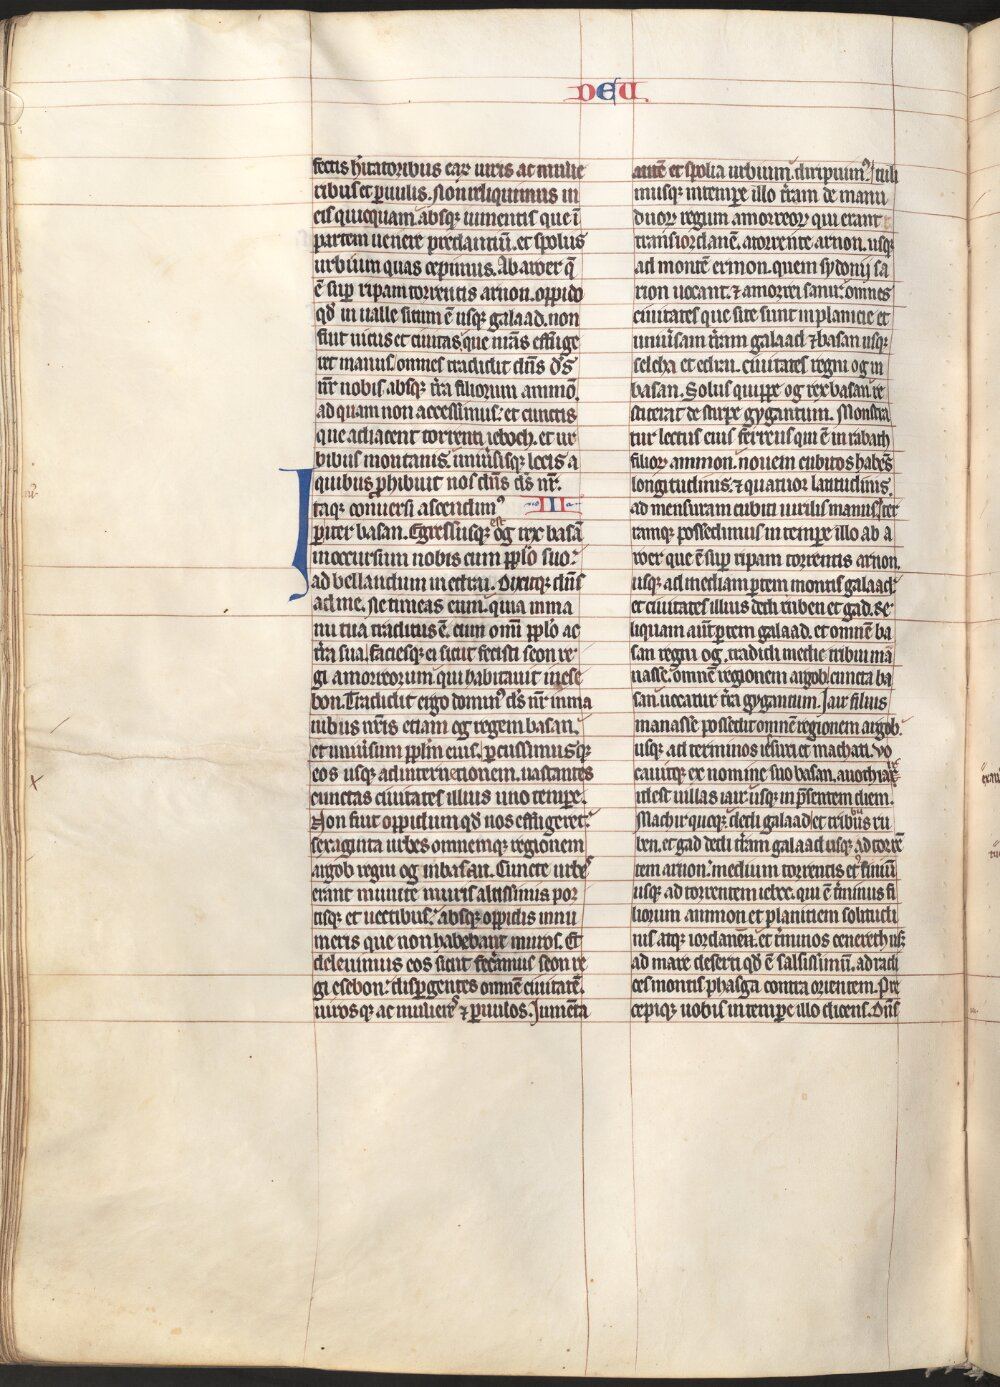 DEU
fectis hitatoribus eaꝝ uiris ac mulie
ribus et puulis. Non reliquimus in
eis quicquam. absqꝫ iumentis que ĩ
partem uenere predantiũ. et spoliis
urbium quas cepimus. Ab aroer q̃
ẽ sup ripam torrentis arnon. oppido
qd̓ in ualle situm ẽ usqꝫ galaad. non
fuit uicus et ciuitas que nr̃as effuge
ret manus. omnes tradidit dñs ds̃
nr̃ nobis. absqꝫ tr̃a filiorum ammõ.
ad quam non accessimus. et cunctis
que adiacent torrenti ieboch. et ur
bibus montanis. uniũsisqꝫ locis a
quibus phibuit nos dñs ds̃ nr̃.
III
Itaqꝫ conuersi ascendimꝰ
p iter basan. Egressusqꝫ est og rex basã
in occursum nobis cum pplo suo.
ad bellandum in edrai. Dixitqꝫ dñs
ad me. Ne timeas eum. quia in ma
nu tua traditus ẽ. cum omĩ pplo ac
tr̃a sua. faciesqꝫ ei sicut fecisti seon re
gi amorreorum qui habitauit in ese
bon. Tradidit ergo dominꝰ ds̃ nr̃ in ma
nibus nr̃is etiam og regem basan.
et uniũsum pplm eius. pcussimusqꝫ
eos usqꝫ ad internetionem. uastantes
cunctas ciuitates illius uno tempe.
Non fuit oppidum qd̓ nos effugeret.
sexaginta urbes omnemqꝫ regionem
argob regni og in basan. Cuncte urbes
erant munite muris altissimis por
tisqꝫ et uectibus. absqꝫ oppidis innu
meris que non habebant muros. Et
deleuimus eos sicut feceramus seon re
gi esebon. dispergentes omnẽ ciuitatẽ.
uirosqꝫ ac mulieres ⁊ puulos. Iumẽta
autẽ et spolia urbium diripuimꝰ. tuli
musqꝫ in tempe illo tr̃am de manu
duoꝝ regum amorreoꝝ qui erant
trans iordanẽ. a torrente arnon. usqꝫ
ad montẽ ermon. quem sydonij sa
rion uocant. ⁊ amorrei sanir. omnes
ciuitates que site sunt in planicie et
uniũsam tr̃am galaad ⁊ basan usqꝫ
selcha et edrai. ciuitates regni og in
basan. Solus quippe og rex basan re
stiterat de stirpe gygantum. Monstra
tur lectus eius ferreus qui ẽ in rabath
filioꝝ ammon. nouem cubitos habẽs
longitudinis. ⁊ quatuor latitudinis.
ad mensuram cubiti uirilis manus. ter
ramqꝫ possedimus in tempe illo ab a
roer que ẽ sup ripam torrentis arnon.
usqꝫ ad mediam ptem montis galaad.
et ciuitates illius dedi ruben et gad. Re
liquam aut̃ ptem galaad. et omnẽ ba
san regni og. tradidi medie tribui mã
nasse. omnẽ regionem argob. cuncta ba
san uocatur tr̃a gygantum. Iair filius
manasse possedit omnẽ regionem argob.
usqꝫ ad terminos iesuri et machati. Vo
cauitqꝫ ex nomine suo basan. auoth iair.
id est uillas iair. usqꝫ in p̃sentem diem.
Machir quoqꝫ dedi galaad. et tribubꝰ ru
ben. et gad dedi tr̃am galaad usqꝫ ad torrẽ
tem arnon. medium torrentis et finiũ
usqꝫ ad torrentem ieboc. qui ẽ t̃minus fi
liorum ammon et planitiem solitudi
nis atqꝫ iordanẽ. et t̃minos cenereth usqꝫ
ad mare deserti qd̓ ẽ salsissimũ. ad radi
ces montis phasga contra orientem. Pre
cepiqꝫ uobis in tempe illo dicens. Dñs